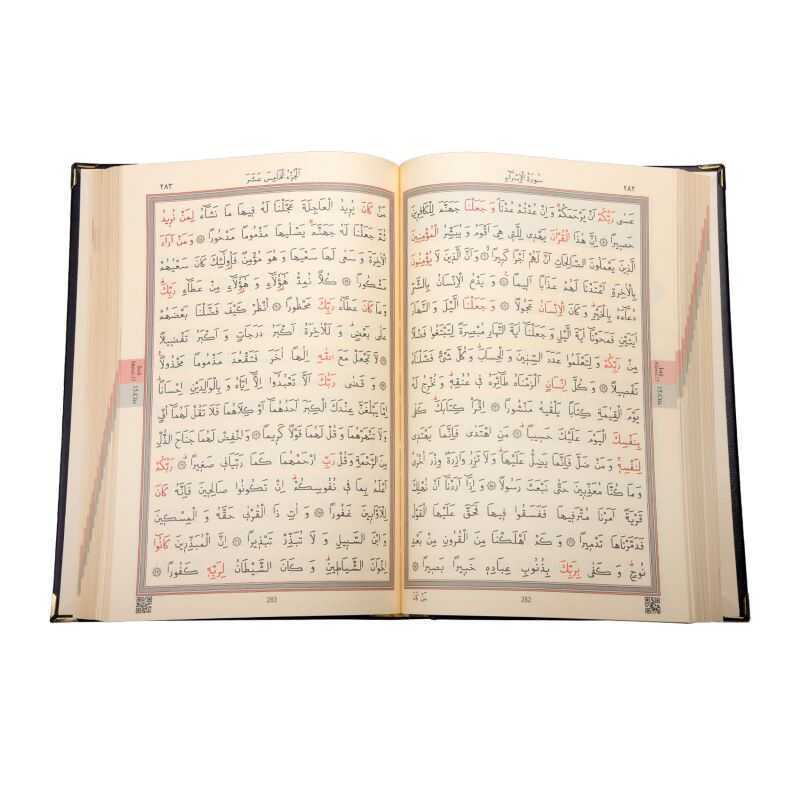 ٢٨٢
سُورَةُ الْاِسْرَاءِ
عَسٰى رَبُّكُمْ اَنْ يَرْحَمَكُمْۚ وَاِنْ عُدْتُمْ عُدْنَاۢ وَ جَعَلْنَا جَهَنَّمَ لِلْكَافِر۪ينَ
حَص۪يراً ۞ اِنَّ هٰذَا الْقُرْاٰنَ يَهْد۪ي لِلَّت۪ي هِيَ اَقْوَمُ وَ يُبَشِّرُ الْمُؤْمِن۪ينَ
الَّذ۪ينَ يَعْمَلُونَ الصَّالِحَاتِ اَنَّ لَهُمْ اَجْراً كَب۪يراًۙ ۞ وَ اَنَّ الَّذ۪ينَ لَا يُؤْمِنُونَ
بِالْاٰخِرَةِ اَعْتَدْنَا لَهُمْ عَذَاباً اَل۪يماً۟ ۞ وَ يَدْعُ الْاِنْسَانُ بِالشَّرِّ
دُعَٓاءَهُ بِالْخَيْرِۜ وَ كَانَ الْاِنْسَانُ عَجُولاً ۞ وَ جَعَلْنَا الَّيْلَ وَ النَّهَارَ
اٰيَتَيْنِ فَمَحَوْنَٓا اٰيَةَ الَّيْلِ وَ جَعَلْنَٓا اٰيَةَ النَّهَارِ مُبْصِرَةً لِتَبْتَغُوا فَضْلاً
مِنْ رَبِّكُمْ وَ لِتَعْلَمُوا عَدَدَ السِّن۪ينَ وَ الْحِسَابَۜ وَ كُلَّ شَيْءٍ فَصَّلْنَاهُ
تَفْص۪يلاً ۞ وَ كُلَّ اِنْسَانٍ اَلْزَمْنَاهُ طَٓائِرَهُ ف۪ي عُنُقِه۪ۜ وَ نُخْرِجُ لَهُ
يَوْمَ الْقِيٰمَةِ كِتَاباً يَلْقٰيهُ مَنْشُوراً ۞ اِقْرَأْ كِتَابَكَۜ كَفٰى
بِنَفْسِكَ الْيَوْمَ عَلَيْكَ حَس۪يباًۜ ۞ مَنِ اهْتَدٰى فَاِنَّمَا يَهْتَد۪ي
لِنَفْسِه۪ۚ وَ مَنْ ضَلَّ فَاِنَّمَا يَضِلُّ عَلَيْهَاۜ وَ لَا تَزِرُ وَازِرَةٌ وِزْرَ اُخْرٰىۜ
وَ مَا كُنَّا مُعَذِّب۪ينَ حَتّٰى نَبْعَثَ رَسُولاً ۞ وَ اِذَٓا اَرَدْنَٓا اَنْ نُهْلِكَ
قَرْيَةً اَمَرْنَا مُتْرَف۪يهَا فَفَسَقُوا ف۪يهَا فَحَقَّ عَلَيْهَا الْقَوْلُ
فَدَمَّرْنَاهَا تَدْم۪يراً ۞ وَ كَمْ اَهْلَكْنَا مِنَ الْقُرُونِ مِنْ بَعْدِ
نُوحٍۜ وَ كَفٰى بِرَبِّكَ بِذُنُوبِ عِبَادِه۪ خَب۪يراً بَص۪يراً ۞
282
٢٨٣
اَلْجُزْءُ الْخَامِسَ عَشَرَ
مَنْ كَانَ يُر۪يدُ الْعَاجِلَةَ عَجَّلْنَا لَهُ ف۪يهَا مَا نَشَٓاءُ لِمَنْ نُر۪يدُ
ثُمَّ جَعَلْنَا لَهُ جَهَنَّمَۚ يَصْلٰيهَا مَذْمُوماً مَدْحُوراً ۞ وَ مَنْ اَرَادَ
الْاٰخِرَةَ وَ سَعٰى لَهَا سَعْيَهَا وَ هُوَ مُؤْمِنٌ فَاُو۬لٰٓئِكَ كَانَ سَعْيُهُمْ
مَشْكُوراً ۞ كُلّاً نُمِدُّ هٰٓؤُ۬لَٓاءِ وَ هٰٓؤُ۬لَٓاءِ مِنْ عَطَٓاءِ رَبِّكَۜ
وَمَا كَانَ عَطَٓاءُ رَبِّكَ مَحْظُوراً ۞ اُنْظُرْ كَيْفَ فَضَّلْنَا بَعْضَهُمْ
عَلٰى بَعْضٍۜ وَ لَلْاٰخِرَةُ اَكْبَرُ دَرَجَاتٍ وَ اَكْبَرُ تَفْض۪يلاً
۞ لَا تَجْعَلْ مَعَ اللّٰهِ اِلٰهاً اٰخَرَ فَتَقْعُدَ مَذْمُوماً مَخْذُولاً۟
۞ وَ قَضٰى رَبُّكَ اَلَّا تَعْبُدُٓوا اِلَّٓا اِيَّاهُ وَ بِالْوَالِدَيْنِ اِحْسَاناًۜ
اِمَّا يَبْلُغَنَّ عِنْدَكَ الْكِبَرَ اَحَدُهُمَٓا اَوْ كِلَاهُمَا فَلَا تَقُلْ لَهُمَٓا اُفٍّ
وَ لَا تَنْهَرْهُمَا وَ قُلْ لَهُمَا قَوْلاً كَر۪يماً ۞ وَ اخْفِضْ لَهُمَا جَنَاحَ الذُّلِّ
مِنَ الرَّحْمَةِ وَ قُلْ رَبِّ ارْحَمْهُمَا كَمَا رَبَّيَان۪ي صَغ۪يراًۜ ۞ رَبُّكُمْ
اَعْلَمُ بِمَا ف۪ي نُفُوسِكُمْۜ اِنْ تَكُونُوا صَالِح۪ينَ فَاِنَّهُ كَانَ
لِلْاَوَّاب۪ينَ غَفُوراً ۞ وَ اٰتِ ذَا الْقُرْبٰى حَقَّهُ وَ الْمِسْك۪ينَ
وَ ابْنَ السَّب۪يلِ وَ لَا تُبَذِّرْ تَبْذ۪يراً ۞ اِنَّ الْمُبَذِّر۪ينَ كَانُٓوا
اِخْوَانَ الشَّيَاط۪ينِۜ وَ كَانَ الشَّيْطَانُ لِرَبِّه۪ كَفُوراً ۞
283